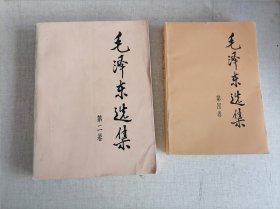 毛泽东选集
第二卷
毛泽东选集
第四卷